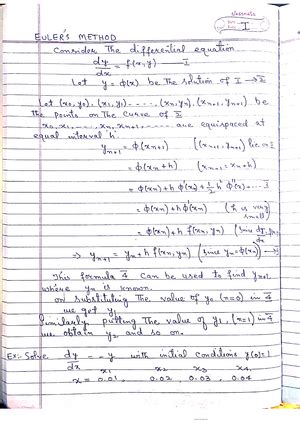 classmate
I
EULER'S METHOD
Consider The differential equation
dy/dx = f(x,y) — I
Let y = φ(x) be the solution of I → 2
Let (x₀,y₀), (x₁,y₁) ----- , (xₙ,yₙ), (xₙ₊₁,yₙ₊₁) be
the points on the curve of 2
x₀,x₁,...,xₙ,xₙ₊₁ ----- are equispaced at
equal interval h.
yₙ₊₁ = φ(xₙ₊₁) [(xₙ₊₁,yₙ₊₁) lie on
= φ(xₙ+h) (xₙ₊₁ = xₙ+h)
= φ(xₙ) + h φ'(xₙ) + 1/2 h² φ''(xₙ) ...
= φ(xₙ) + h φ'(xₙ) (h is very small)
= φ(xₙ) + h f(xₙ,yₙ)
⇒ yₙ₊₁ = yₙ + h f(xₙ,yₙ) (since yₙ = φ(xₙ)) → 4
This formula 4 can be used to find yₙ₊₁
where yₙ is known.
on substituting the value of y₀ (n=0) in 4
we get y₁
Similarly putting the value of y₁, (n=1) in 4
we obtain y₂ and so on.
Ex:- Solve dy/dx = -y with initial conditions y(0)=1
x₁ x₂ x₃ x₄
x = 0.01, 0.02, 0.03, 0.04